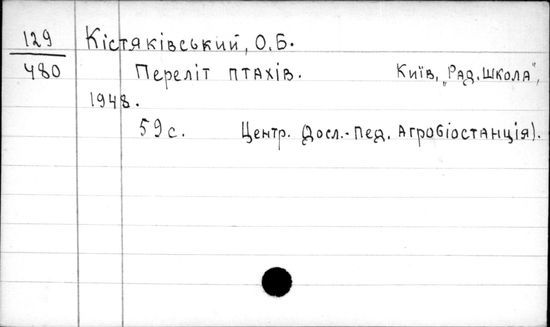 129 Кістяківський, О.Б.
480 Переліт птахів. Київ, „Рад. школа",
1948.
59 с. Центр. Досл.-Пед. Агробіостанція).